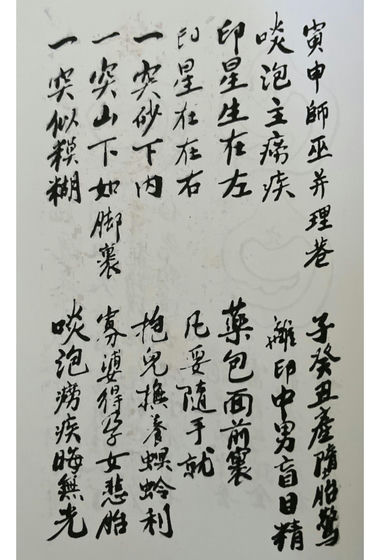 寅申師巫并理巷
子癸丑產墮胎驚
啖泡主癆疾
離印中男盲目精
印星生在左
藥包面前裹
印星在在右
凡妥隨手就
一突砂下內
抱兒撫養螟蛉利
一突山下如脚裹
寡婆得孕女悲胎
一突似糢糊
啖泡癆疾晦無光